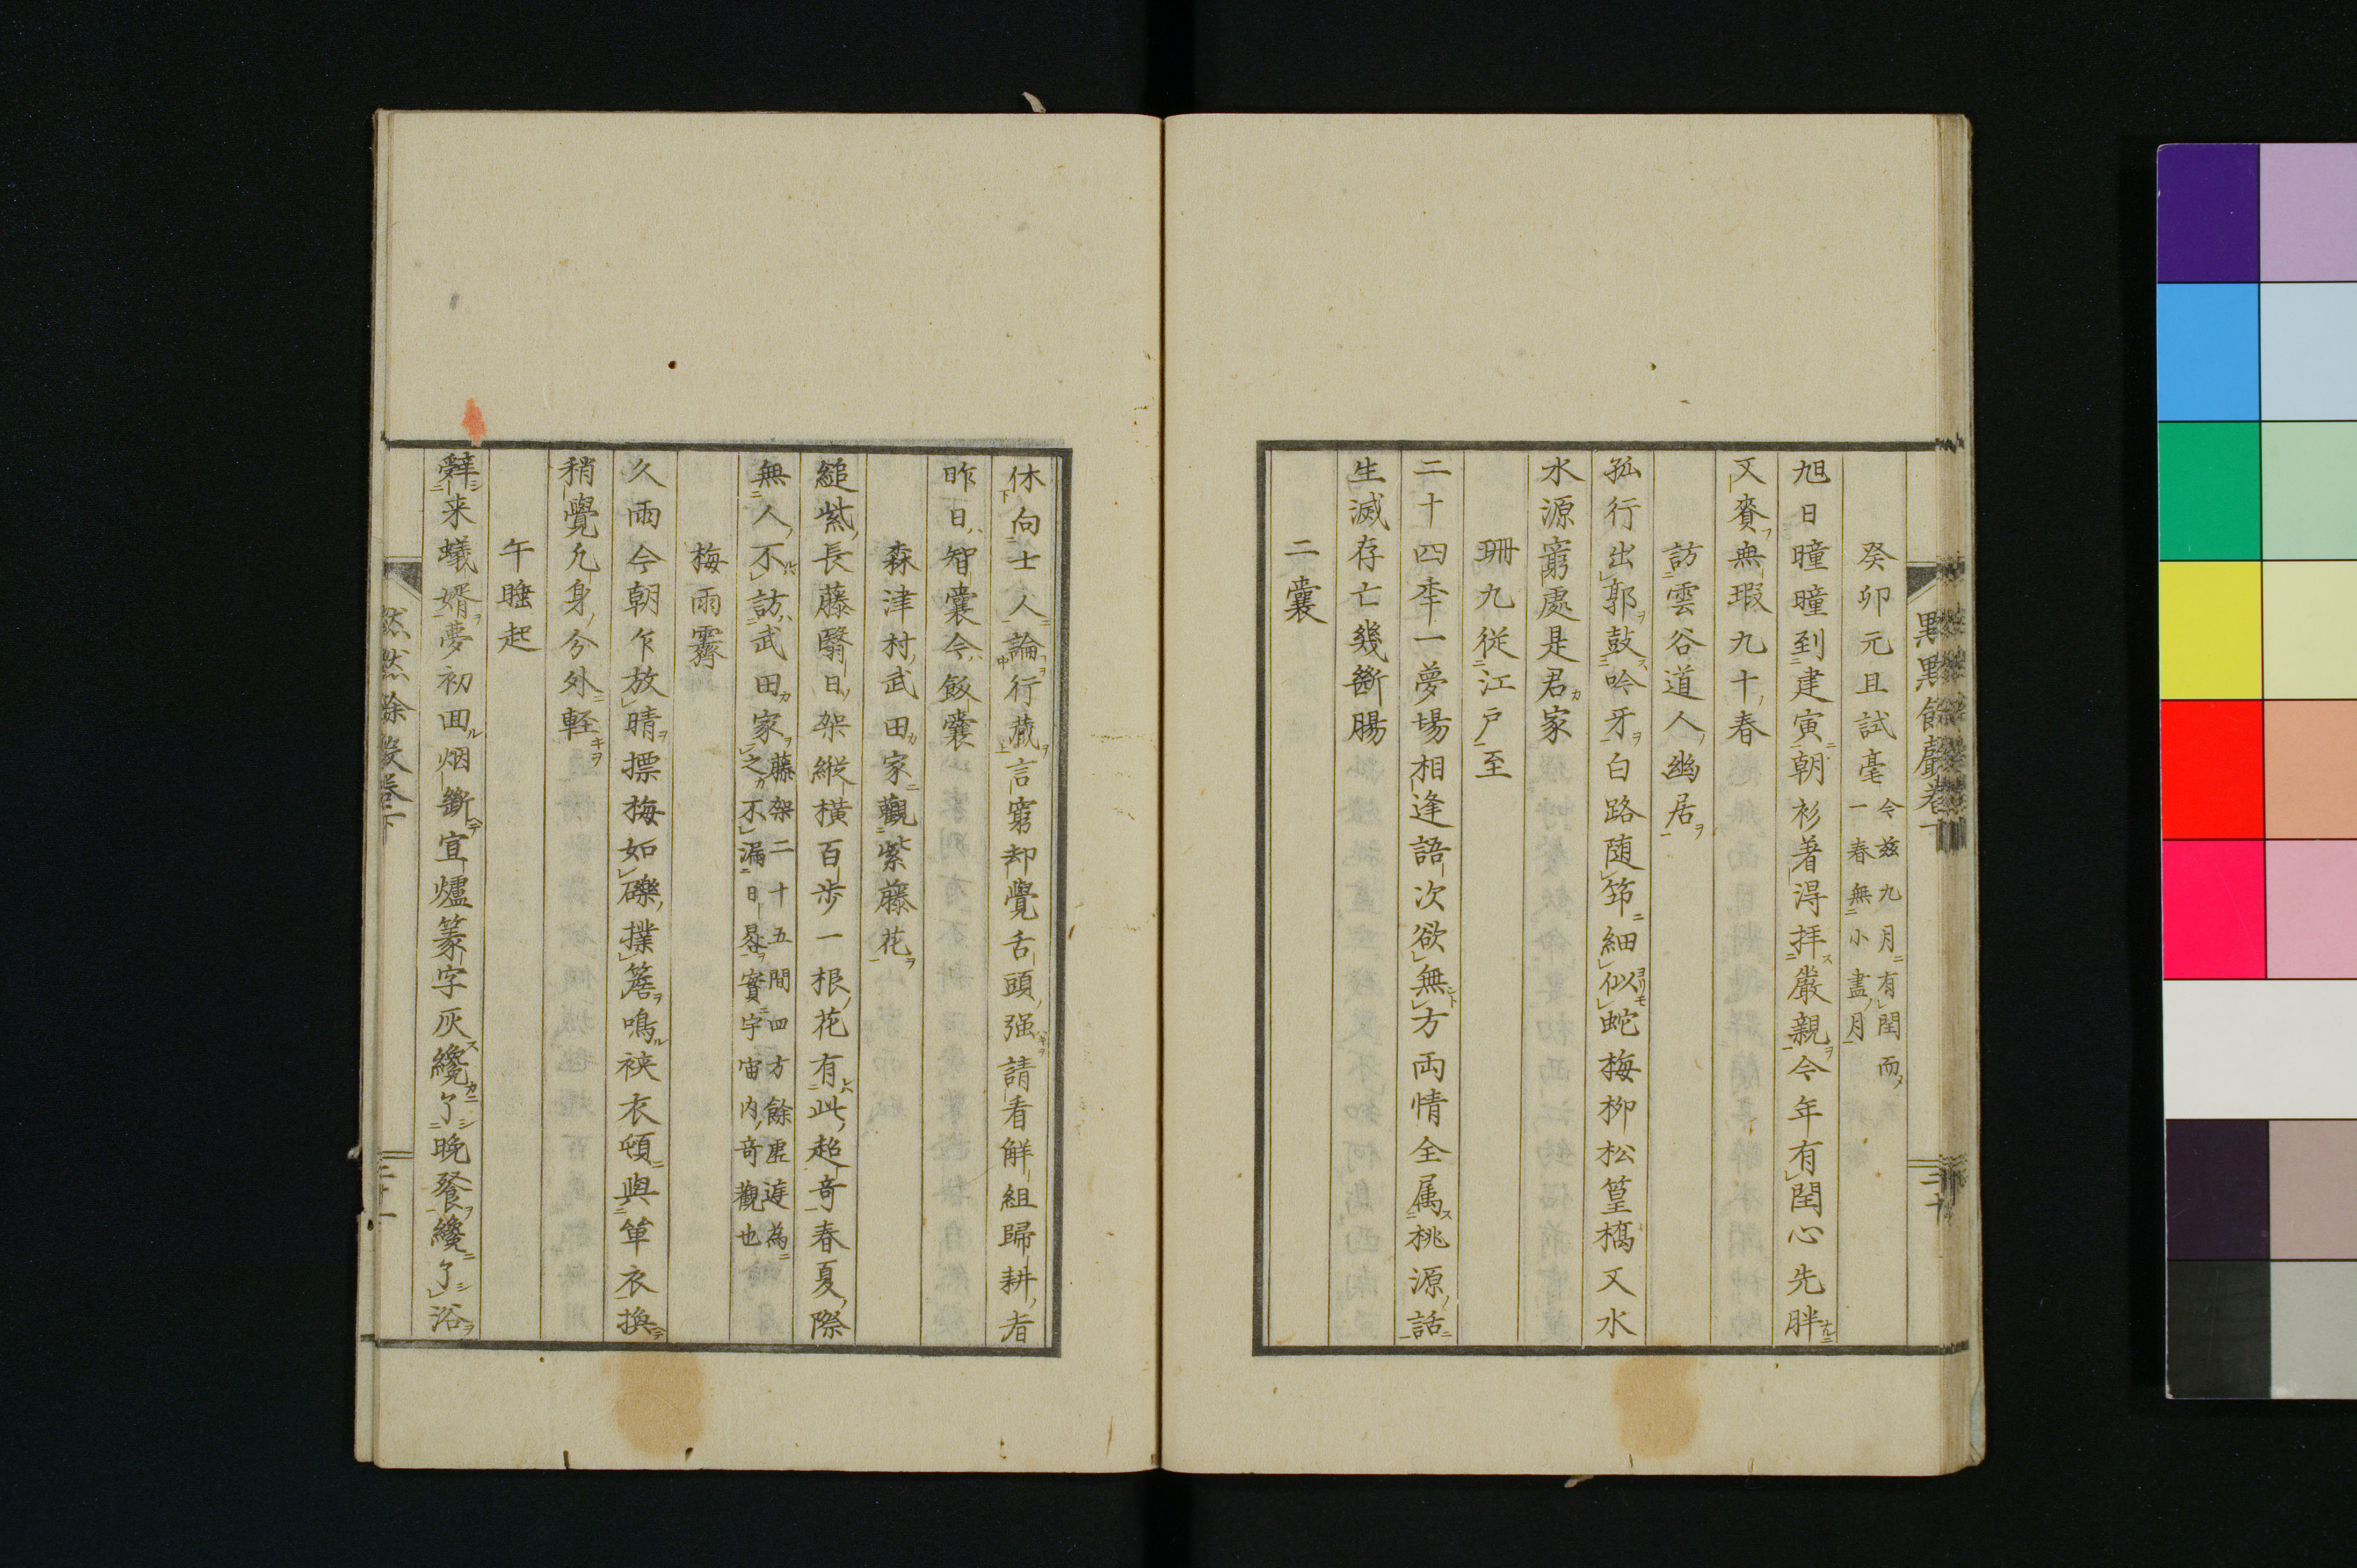 癸卯元旦試毫 今茲九月有閏而
一春無小盡月
旭日曈曈到建寅朝衫著得拝嚴親今年有閏心先胖
又賚無瑕九十春
訪雲谷道人幽居
孤行出郭鼓吟牙白路随筇細似蛇梅柳松篁橋又水
水源窮處是君家
珊九従江戸至
二十四季一夢場相逢語次欲無方両情全属桃源話
生滅存亡幾斷腸
二嚢
休向士人論行蔵言窮却覺舌頭强請看觧組歸耕者
昨日智嚢今飯嚢
森津村武田家觀紫藤花
縋紫長藤翳日架縱横百歩一根花有此超竒春夏際
無人不訪武田家 藤架二十五間四方餘虚遅為
之不漏日晷實宇宙内竒觀也
梅雨霽
久雨今朝乍放晴摽梅如礫撲簷鳴裌衣頓與単衣換
稍覺允身分外軽
午睡起
辭来蟻婿夢初囬烟斷宣爐篆字灰纔了晩餐纔了浴